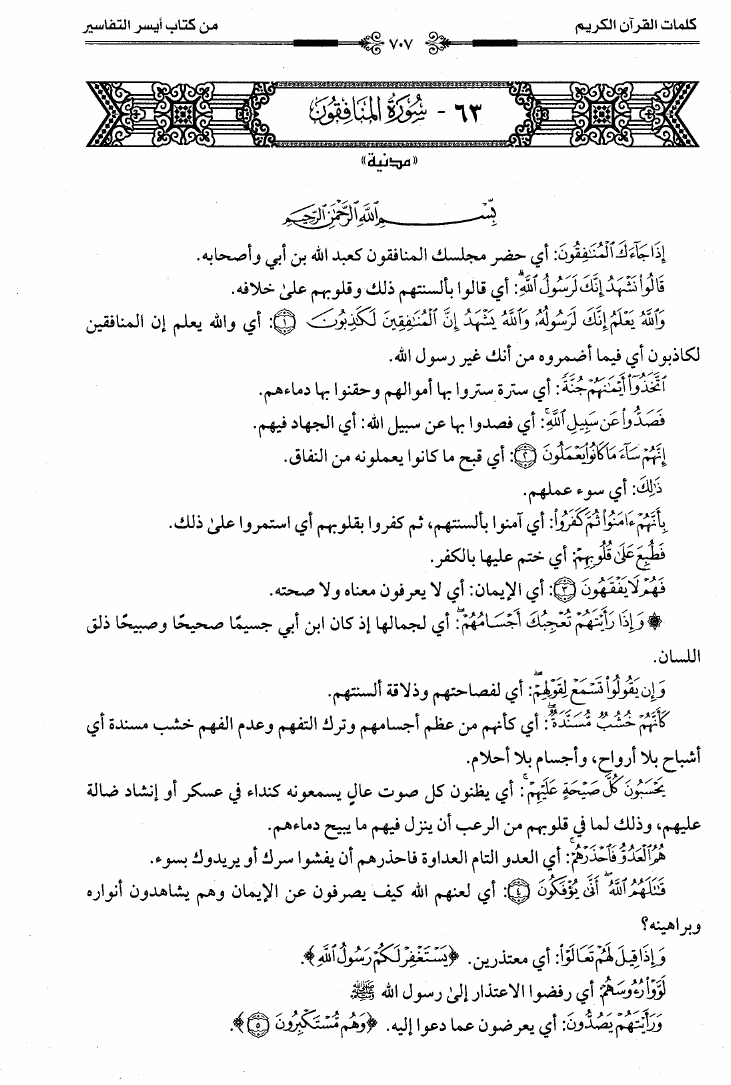 كلمات القرآن الكريم
٧٠٧
من كتاب أيسر التفاسير
٦٣ - سُورَةُ المُنَافِقُونَ
«مدنية»
بِسْمِ اللَّهِ الرَّحْمَنِ الرَّحِيمِ
إِذَا جَآءَكَ ٱلْمُنَٰفِقُونَ: أي حضر مجلسك المنافقون كعبد الله بن أبي وأصحابه.
قَالُوا۟ نَشْهَدُ إِنَّكَ لَرَسُولُ ٱللَّهِ ۗ: أي قالوا بألسنتهم ذلك وقلوبهم علىٰ خلافه.
وَٱللَّهُ يَعْلَمُ إِنَّكَ لَرَسُولُهُۥ وَٱللَّهُ يَشْهَدُ إِنَّ ٱلْمُنَٰفِقِينَ لَكَٰذِبُونَ ١: أي والله يعلم إن المنافقين
لكاذبون أي فيما أضمروه من أنك غير رسول الله.
ٱتَّخَذُوٓا۟ أَيْمَٰنَهُمْ جُنَّةً: أي سترة ستروا بها أموالهم وحقنوا بها دماءهم.
فَصَدُّوا۟ عَن سَبِيلِ ٱللَّهِ ۚ: أي فصدوا بها عن سبيل الله: أي الجهاد فيهم.
إِنَّهُمْ سَآءَ مَا كَانُوا۟ يَعْمَلُونَ ٢: أي قبح ما كانوا يعملونه من النفاق.
ذَٰلِكَ: أي سوء عملهم.
بِأَنَّهُمْ ءَامَنُوا۟ ثُمَّ كَفَرُوا۟: أي آمنوا بألسنتهم، ثم كفروا بقلوبهم أي استمروا علىٰ ذلك.
فَطُبِعَ عَلَىٰ قُلُوبِهِمْ: أي ختم عليها بالكفر.
فَهُمْ لَا يَفْقَهُونَ ٣: أي الإيمان: أي لا يعرفون معناه ولا صحته.
۞ وَإِذَا رَأَيْتَهُمْ تُعْجِبُكَ أَجْسَامُهُمْ ۖ: أي لجمالها إذ كان ابن أبي جسيمًا صحيحًا وصبيحًا ذلق
اللسان.
وَإِن يَقُولُوا۟ تَسْمَعْ لِقَوْلِهِمْ ۖ: أي لفصاحتهم وذلاقة ألسنتهم.
كَأَنَّهُمْ خُشُبٌ مُّسَنَّدَةٌ ۖ: أي كأنهم من عظم أجسامهم وترك التفهم وعدم الفهم خشب مسندة أي
أشباح بلا أرواح، وأجسام بلا أحلام.
يَحْسَبُونَ كُلَّ صَيْحَةٍ عَلَيْهِمْ ۚ: أي يظنون كل صوت عالٍ يسمعونه كنداء في عسكر أو إنشاد ضالة
عليهم، وذلك لما في قلوبهم من الرعب أن ينزل فيهم ما يبيح دماءهم.
هُمُ ٱلْعَدُوُّ فَٱحْذَرْهُمْ ۚ: أي العدو التام العداوة فاحذرهم أن يفشوا سرك أو يريدوك بسوء.
قَٰتَلَهُمُ ٱللَّهُ ۖ أَنَّىٰ يُؤْفَكُونَ ٤: أي لعنهم الله كيف يصرفون عن الإيمان وهم يشاهدون أنواره
وبراهينه؟
وَإِذَا قِيلَ لَهُمْ تَعَالَوْا۟: أي معتذرين. ﴿يَسْتَغْفِرْ لَكُمْ رَسُولُ ٱللَّهِ﴾.
لَوَّوْا۟ رُءُوسَهُمْ أي رفضوا الاعتذار إلىٰ رسول الله ﷺ
وَرَأَيْتَهُمْ يَصُدُّونَ: أي يعرضون عما دعوا إليه. ﴿وَهُم مُّسْتَكْبِرُونَ ٥﴾.